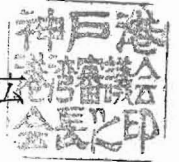 神戸港
港湾審議会
会長之印